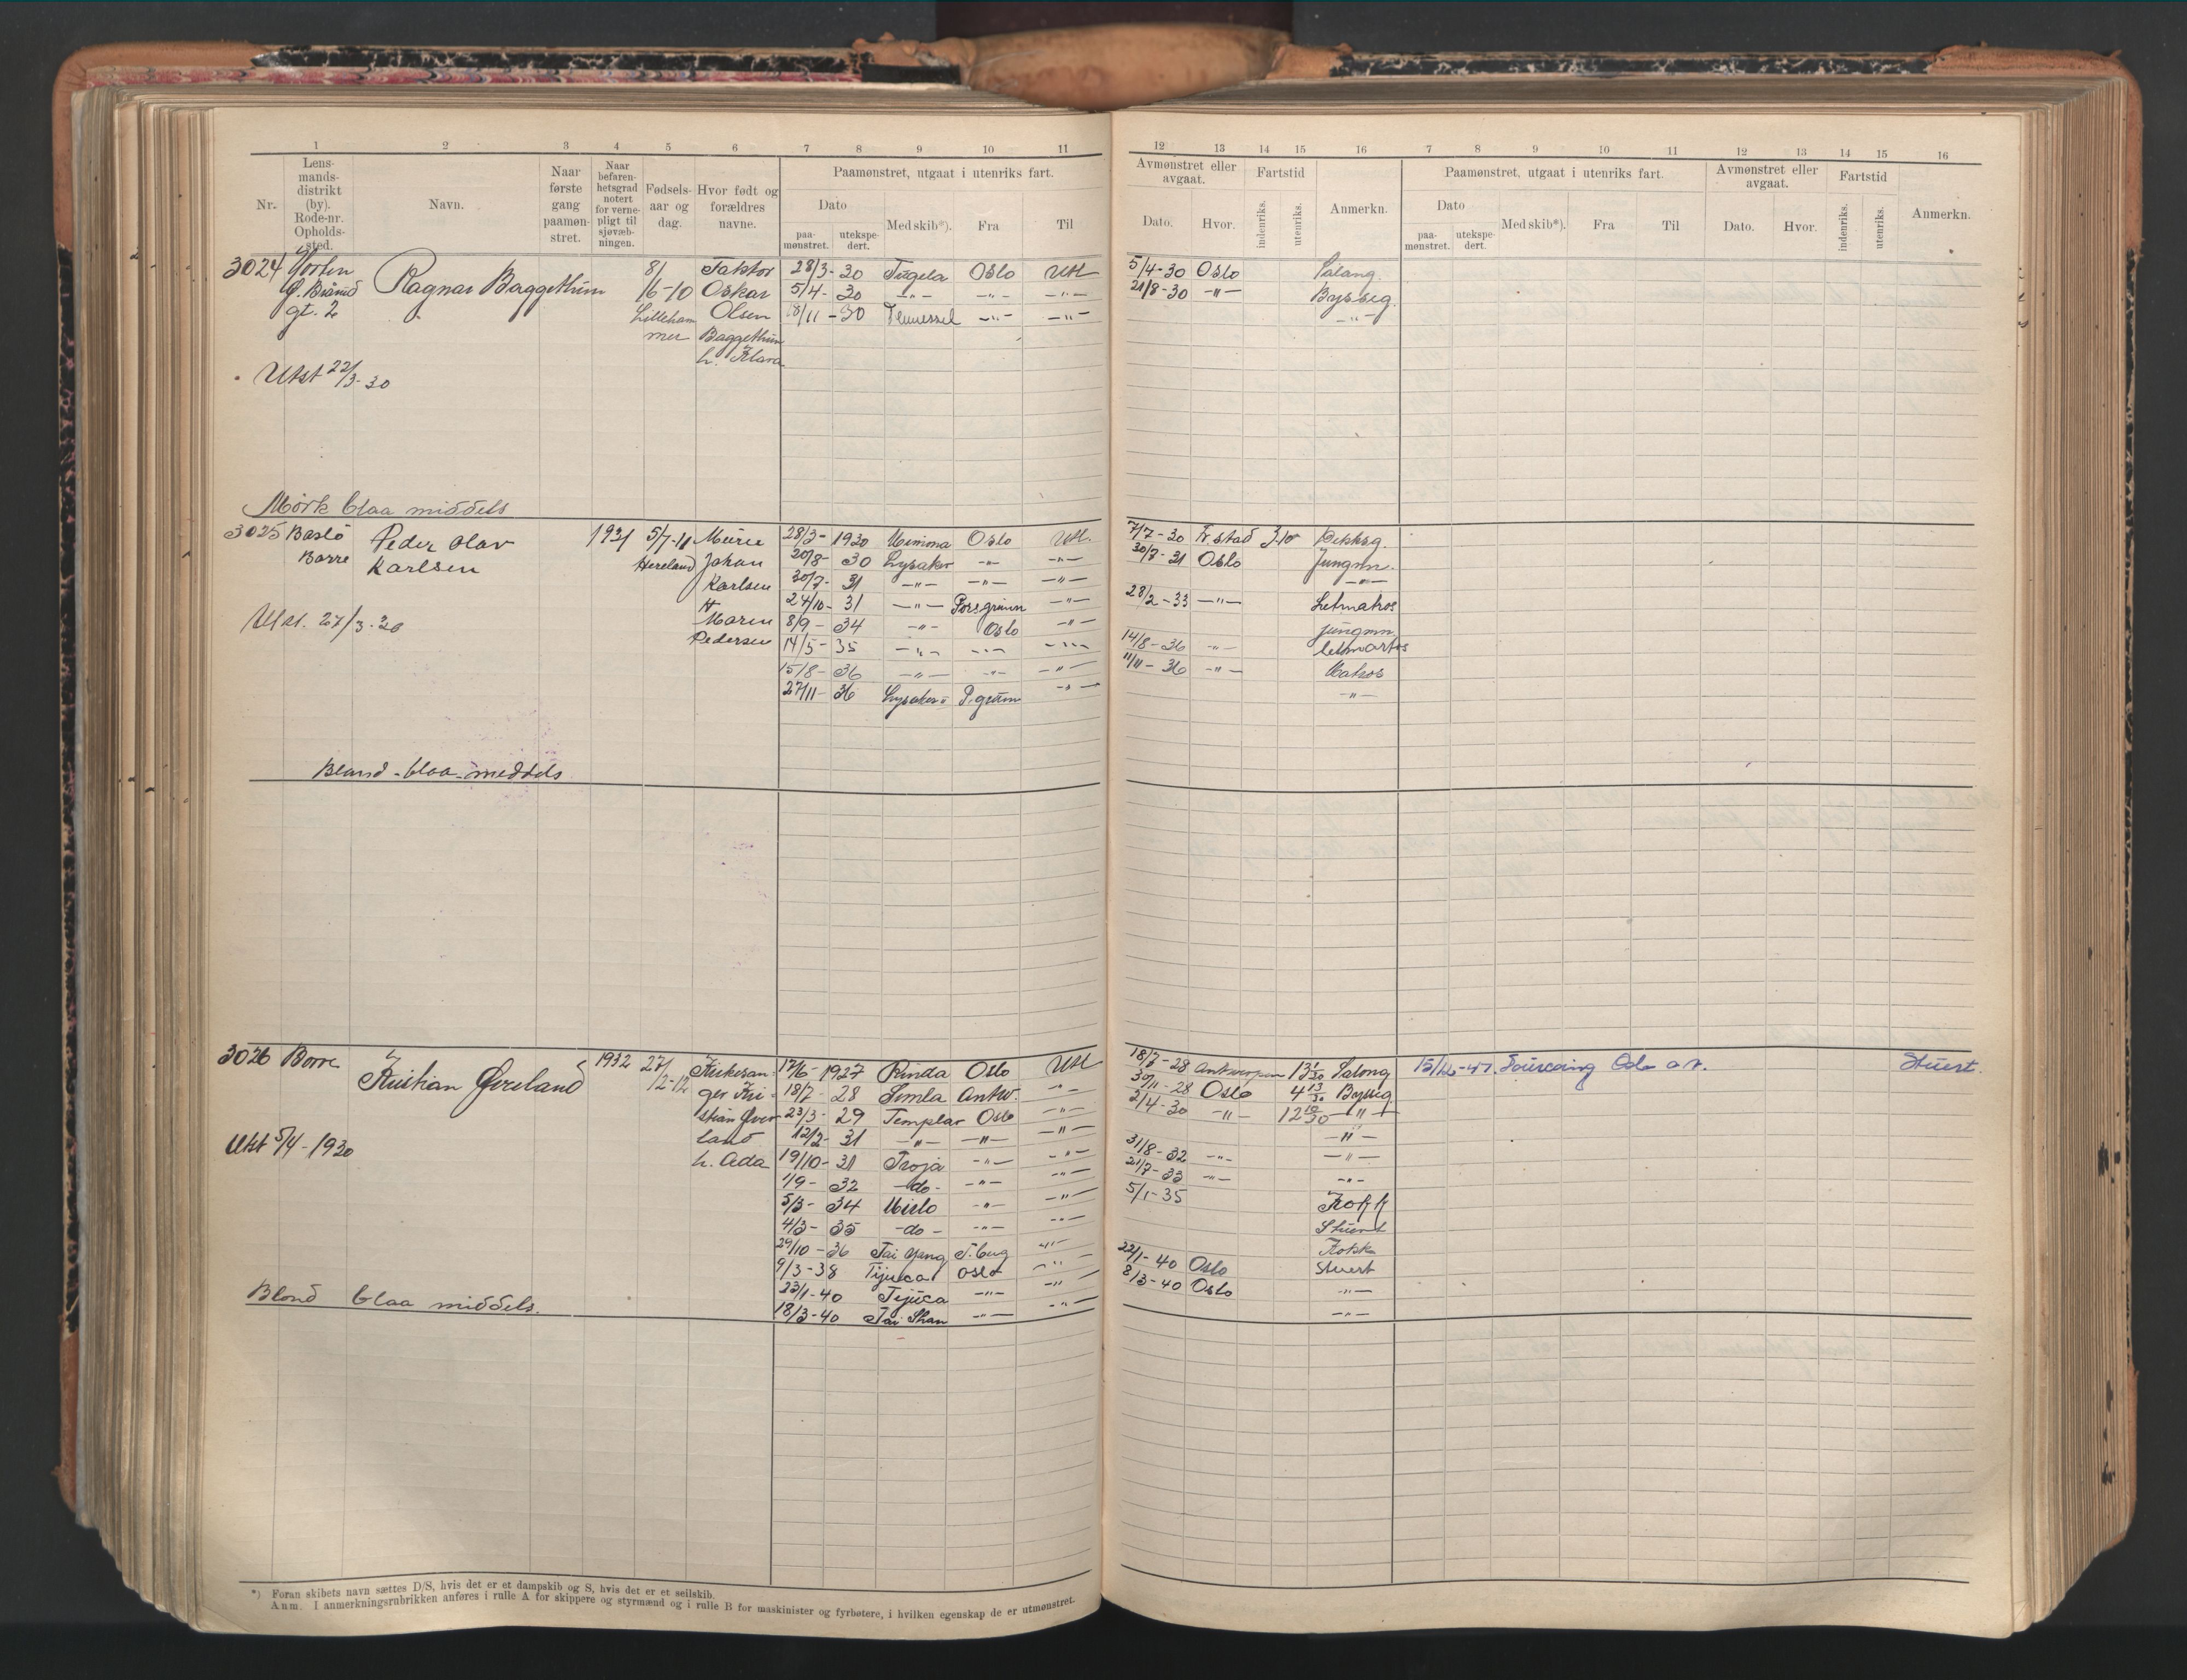 1 2 3 4 5 6 7 8 9 10 11
Nr. Lensmandsdistrikt (by). Rode-nr. Opholdssted. Navn. Naar første gang paamønstret. Naar befarenhetsgrad notert for vernepligt til sjøvæbningen. Fødselsaar og dag. Hvor født og forældres navne. Paamønstret, utgaat i utenriks fart.
Dato Med skib*). Fra Til
paamønstret. utekspedert.
12 13 14 15 16 7 8 9 10 11 12 13 14 15 16
Avmønstret eller avgaat. Fartstid Anmerkn. Paamønstret, utgaat i utenriks fart. Avmønstret eller avgaat. Fartstid Anmerkn.
Dato. Hvor. indenriks. utenriks. Dato Med skib*). Fra Til Dato. Hvor. indenriks. utenriks.
paamønstret. utekspedert.
3024 Horten Ragnar Baggethun 8/ Faktor 28/3-30 Tugela Oslo Utl 5/4-30 Oslo Salong.
gt. 2 /6-10 Oskar 5/4-30 -"- -"- -"- 21/8-30 -"- Bysseg.
Lilleham Olsen 18/11-30 -"- -"- -"-
mer Baggethun
h. Klara
Utst 22/3-30
Mörk blaa middels
3025 Baslö Peder Olav 1931 5/7-11 28/3-1930 Mimona Oslo Utl. 7/7-30 Fr.stad Dekksg.
Borre Karlsen Johan 20/8-30 Lysaker -"- -"- 30/7-31 Oslo Jungm.
Karlsen 30/7-31 -"- -"- -"- -"-
H 24/10-31 -"- Porsgrunn -"- 28/2-33 -"- Letmatros
Maren 8/9-34 -"- Oslo -"- jungmn.
Utst. 27/3-30
Pedersen 14/5-35 -"- -"- -"- 14/8-36 -"- letmatros
15/8-36 -"- -"- -"- 11/11-36 -"- Matros
27/11-36 Lysaker P.grunn -"- -"-
Bland-blaa-meddels
3026 Borre Kristian Øveland 1932 27/ 17/6-1927 Rinda Oslo Utl 18/7-28 Antwerpen 13 1/30 Salong 15/12-47. Oslo Stuert.
/2-12 ger Kri- 18/7-28 Simla Antw. -"- 30/11-28 Oslo 4 13/30 Byssig.
stian Øve 23/3-29 Templar Oslo -"- 2/4-30 -"- 12 10/30 -"-
land 12/2-31 -"- -"- -"- -"-
Utst 5/4-1930
h. Ada 19/10-31 Troja -"- -"- 31/8-32 -"- -"-
1/9-32 -do- -"- -"- 21/7-33 -"- -"-
5/3-34 Mirlo -"- -"- 5/1-35 Kokk
4/3-35 -do- -"- -"- Stuert
29/10-36 Tai Yang T.berg -"- Kokk
9/3-38 Tijuca Oslo -"- 22/1-40 Oslo Stuert
23/1-40 Tijuca -"- -"- 8/3-40 Oslo -"-
Blond blaa middels.
18/3-40 Tai Shan -"- -"- -"-
*) Foran skibets navn sættes D/S, hvis det er et dampskib og S, hvis det er et seilskib.
Anm. I anmerkningsrubrikken anføres i rulle A for skippere og styrmænd og i rulle B for maskinister og fyrbøtere, i hvilken egenskap de er utmønstret.